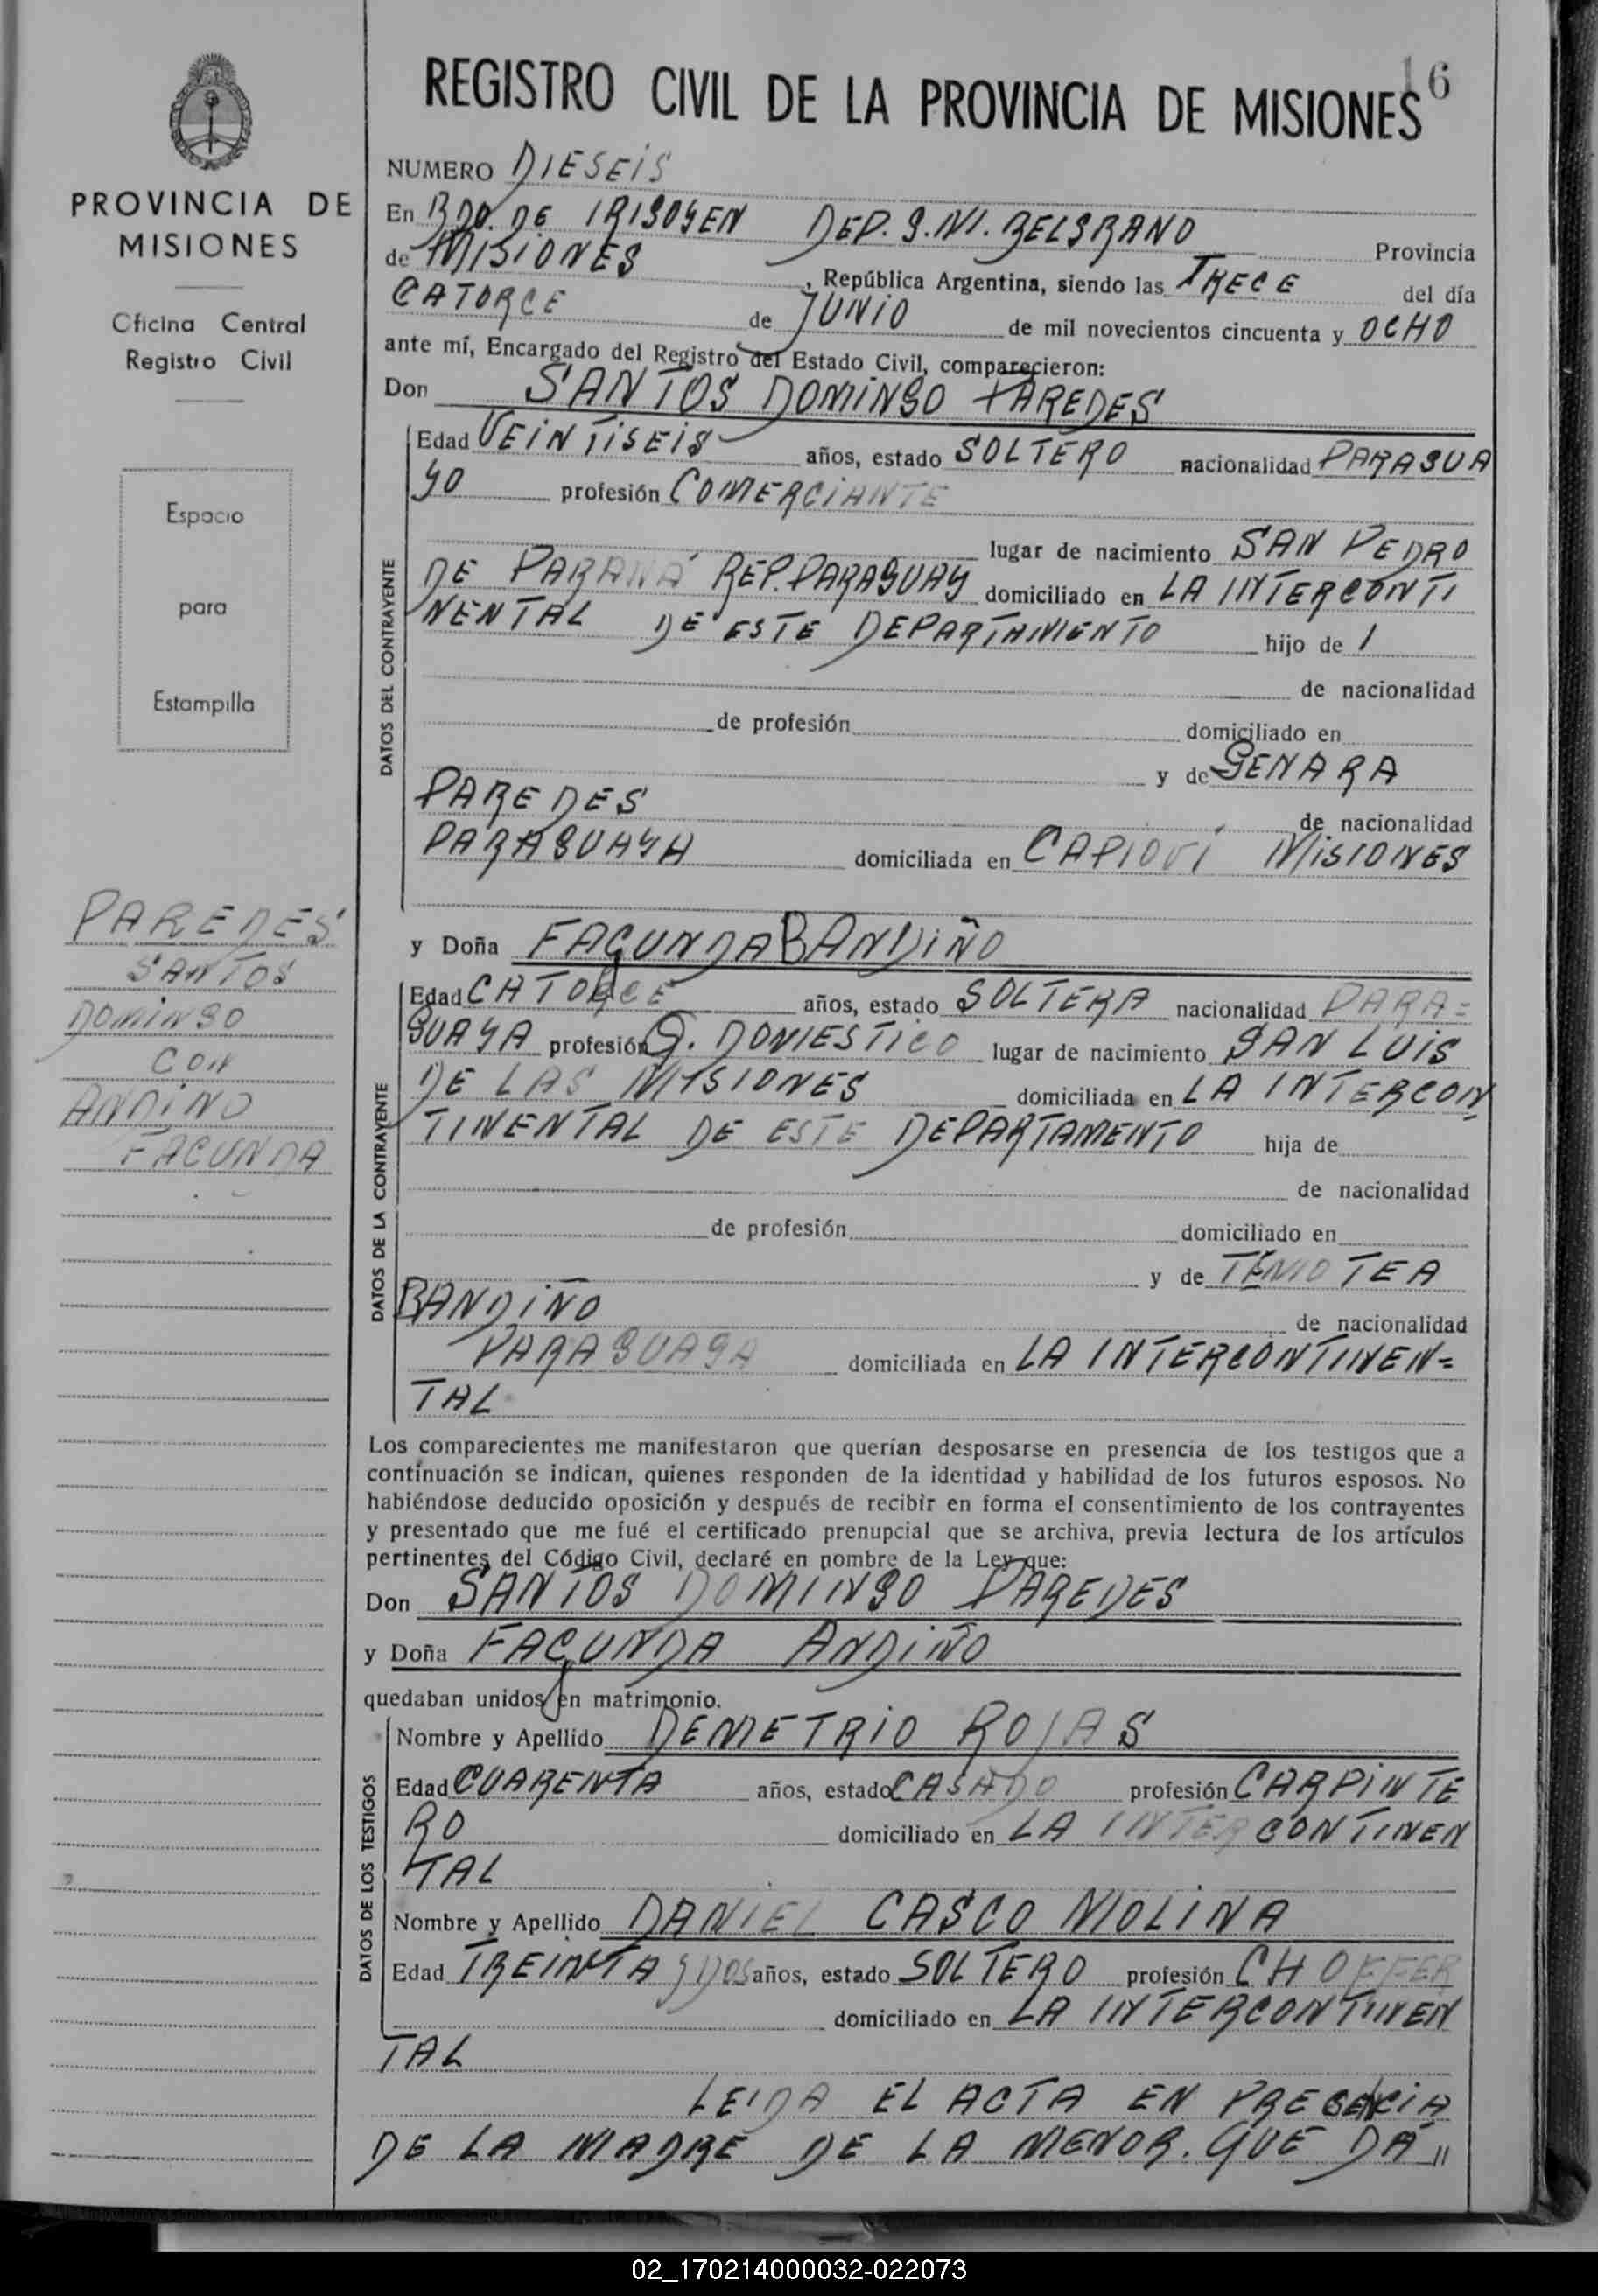 16
REGISTRO CIVIL DE LA PROVINCIA DE MISIONES
PROVINCIA DE
MISIONES
Oficina Central
Registro Civil
Espacio
para
Estampilla
PAREDES
SANTOS
DOMINGO
CON
ANDIÑO
FACUNDA
NUMERO DIESEIS
En BDO. DE IRIGOYEN DEP. G. M. BELGRANO Provincia
de MISIONES, República Argentina, siendo las TRECE del día
CATORCE de JUNIO de mil novecientos cincuenta y OCHO
ante mí, Encargado del Registro del Estado Civil, comparecieron:
Don SANTOS DOMINGO PAREDES
DATOS DEL CONTRAYENTE
Edad VEINTISEIS años, estado SOLTERO nacionalidad PARAGUA
YO profesión COMERCIANTE
lugar de nacimiento SAN PEDRO
DE PARANÁ REP. PARAGUAY domiciliado en LA INTERCONTI
NENTAL DE ESTE DEPARTAMENTO hijo de /
de nacionalidad
de profesión domiciliado en
y de GENARA
PAREDES de nacionalidad
PARAGUAYA domiciliada en CAPIOVÍ MISIONES
y Doña FACUNDA BANDIÑO
DATOS DE LA CONTRAYENTE
Edad CATORCE años, estado SOLTERA nacionalidad PARA=
GUAYA profesión Q. DOMESTICO lugar de nacimiento SAN LUIS
DE LAS MISIONES domiciliada en LA INTERCON
TINENTAL DE ESTE DEPARTAMENTO hija de
de nacionalidad
de profesión domiciliado en
y de TEMIOTEA
BANDIÑO de nacionalidad
PARAGUAYA domiciliada en LA INTERCONTINEN=
TAL
Los comparecientes me manifestaron que querían desposarse en presencia de los testigos que a
continuación se indican, quienes responden de la identidad y habilidad de los futuros esposos. No
habiéndose deducido oposición y después de recibir en forma el consentimiento de los contrayentes
y presentado que me fué el certificado prenupcial que se archiva, previa lectura de los artículos
pertinentes del Código Civil, declaré en nombre de la Ley que:
Don SANTOS DOMINGO PAREDES
y Doña FACUNDA ANDIÑO
quedaban unidos en matrimonio.
DATOS DE LOS TESTIGOS
Nombre y Apellido DEMETRIO ROJAS
Edad CUARENTA años, estado CASADO profesión CARPINTE
RO domiciliado en LA INTERCONTINEN
TAL
Nombre y Apellido DANIEL CASCO MOLINA
Edad TREINTA Y DOS años, estado SOLTERO profesión CHOFFER
domiciliado en LA INTERCONTINEN
TAL
LEIDA EL ACTA EN PRESENCIA
DE LA MADRE DE LA MENOR. QUE DA"
02_170214000032-022073